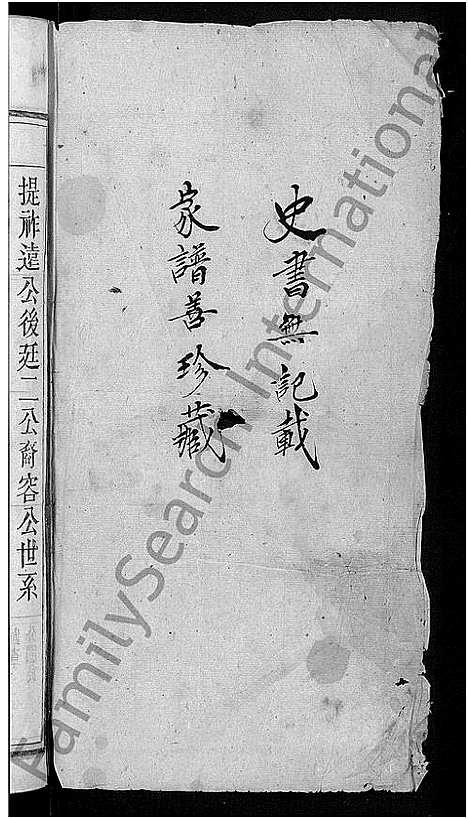 史書無記載
家譜善珍藏
提祚遠公後延二公裔容公世系
FamilySearch International